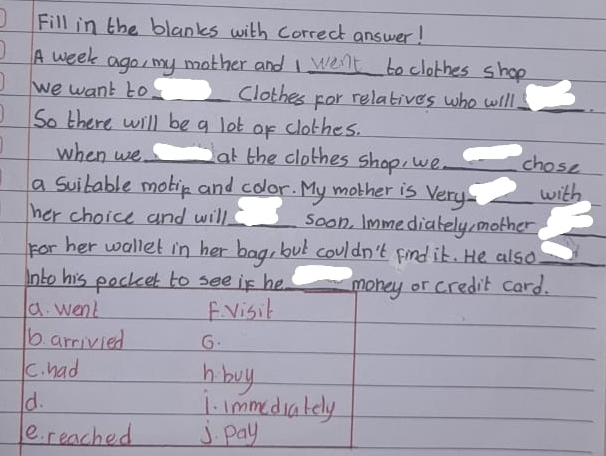 Fill in the blanks with correct answer!
A week ago, my mother and I went to clothes shop
We want to Clothes for relatives who will .
So there will be a lot of clothes.
When we at the clothes shop, we chose
a Suitable motif and color. My mother is Very with
her choice and will soon. Immediately, mother
For her wallet in her bag, but couldn't find it. He also
Into his pocket to see if he money or credit card.
a. went F. Visit
b. arrivied G.
c. had h. buy
d. i. immediately
e. reached J. pay